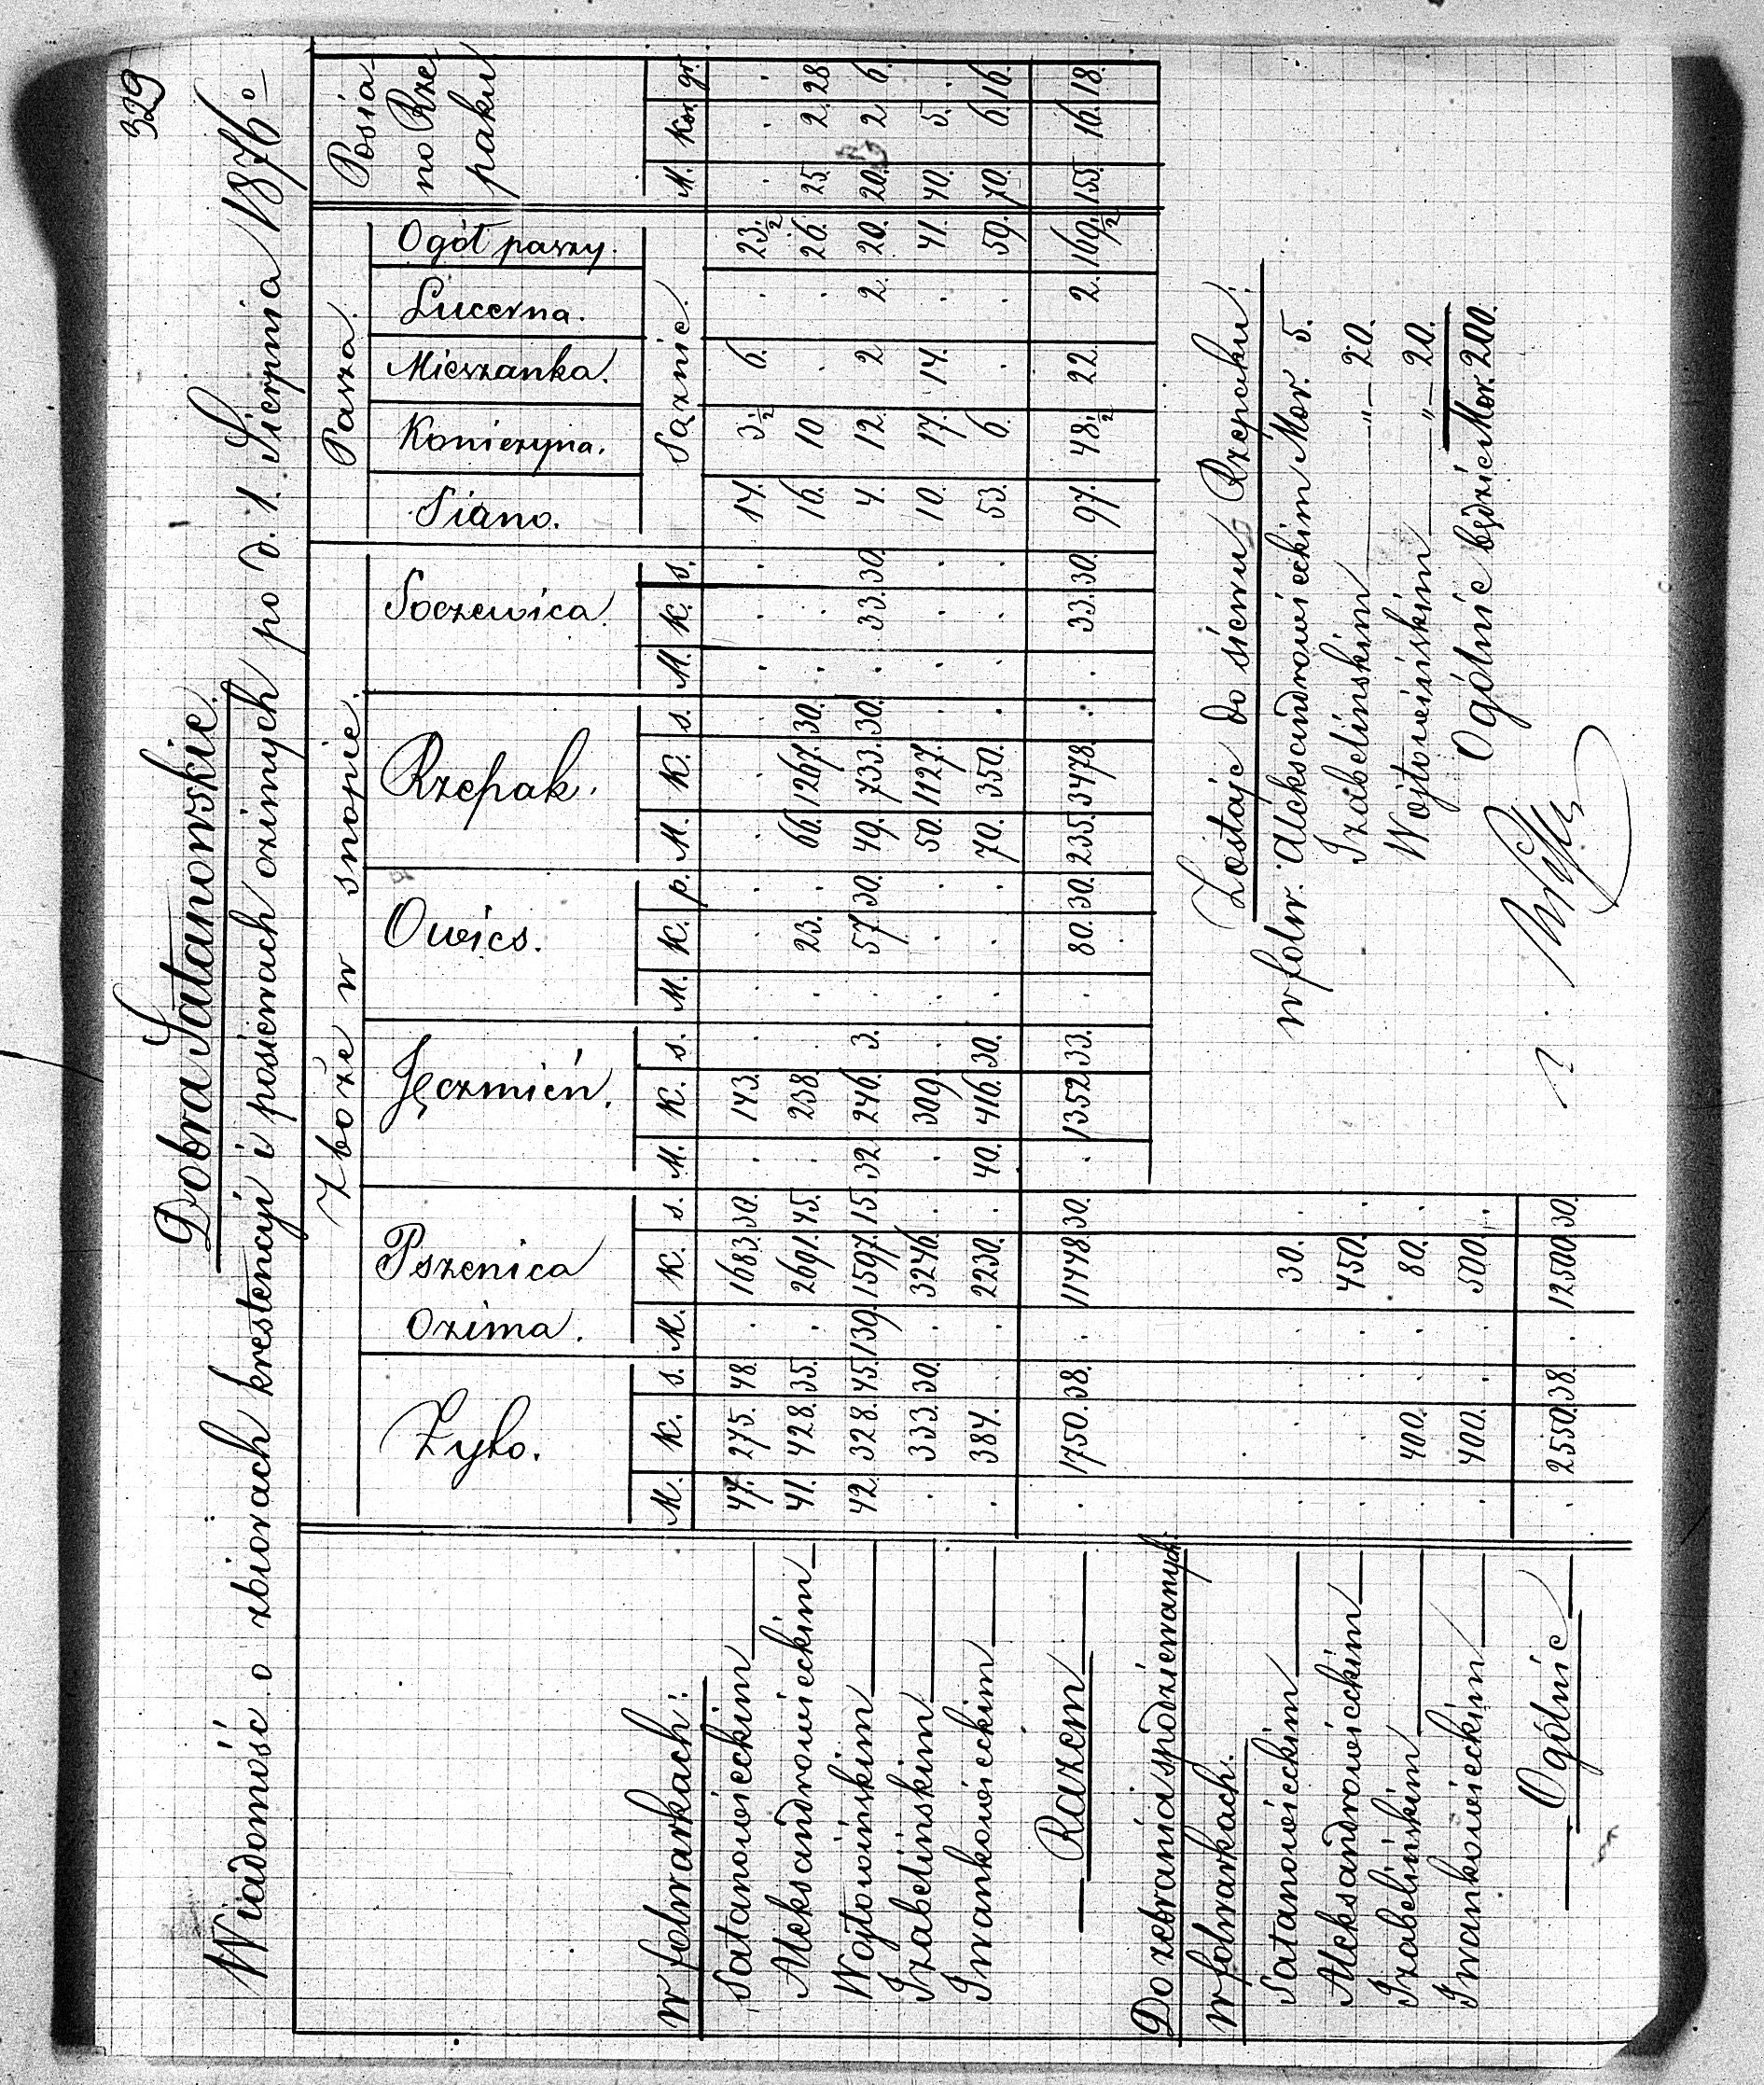 329
Dobra Satanowskie.
Wiadomość o zbiorach krestencyi i posiewach ozimych po d. 1. Sierpnia 1876o
Zboże w snopie. Pasza. Posia-
no Rze
paku
Żyto. Pszenica Ozima. Jęczmień. Owies. Rzepak. Soczewica. Siano. Koniczyna. Mieszanka. Lucerna. Ogół paszy.
w folwarkach: M. K. s. M. K. s. M. K. s. M. K. p. M. K. s. M. K. s. Sążnie. M. Kor. gr.
Satanowieckim 47. 275. 48. . 1683. 30. . 143. . . . . . . . . . . 14. 3½ 6. . 23½ . . .
Aleksandrowieckim 41. 428. 35. . 2691. 45. . 238. . . 23. . 66. 1267. 30. . . . 16. 10. . . 26. 25. 2. 28.
Wojtowińskim 42. 328. 45. 130. 1597. 15. 32. 246. 3. . 57. 30. 49. 733. 30. . 33. 30. 4. 12. 2. 2. 20. 20. 2. 6.
Izabelinskim . 333. 30. . 3246. . . 309. . . . . 50. 1127. . . . . 10. 17. 14. . 41. 40. 5. .
Iwankowieckim . 384. . . 2230. . 40. 416. 30. . . . 70. 350. . . . . 53. 6. . . 59. 70. 6. 16.
Razem . 1750. 38. . 11448. 30. . 1352. 33. . 80. 30. 235. 3478. . . 33. 30. 97. 48½ 22. 2. 169½ 155. 16. 18.
Do zebrania spodziewanych
w folwarkach:
Satanowieckim . . . . 30. .
Aleksandrowieckim . . . . 450. .
Izabelińskim . 400. . . 80. .
Iwankowieckim . 400. . . 500. .
Ogólnie . 2550. 38. . 12500. 30.
Zostaje do siewu Rzepaku:
w folw. Aleksandrowieckim Mor. 5.
Izabelinskim " 20.
Wojtowińskim " 20.
Ogólnie będzie Mor. 200.